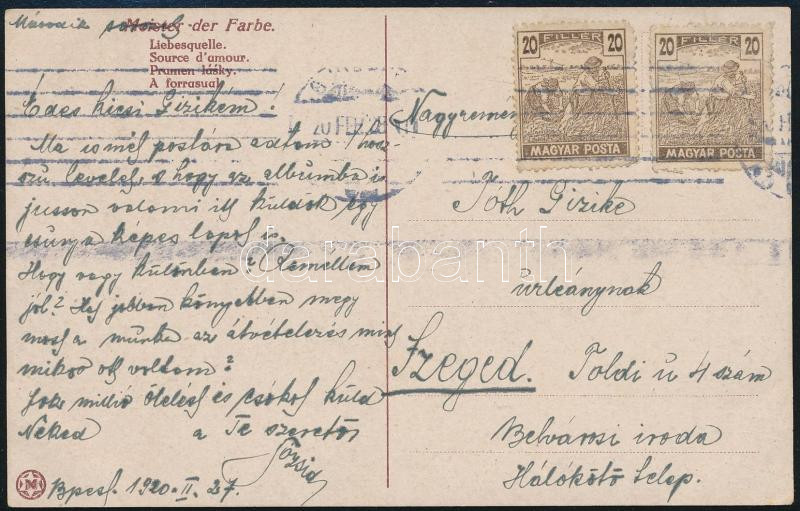 Második
Meister der Farbe.
Liebesquelle.
Source d'amour.
Pramen lásky.
A forrásnál
Édes kicsi Gizikém!
Ma ismét postára adtam hosz-
szú levelet, s hogy az albumba is
jusson valami itt küldök egy
csúnya képes lapot is.
Hogy vagy különben? Remélem
jól? Hej jobban könyebben megy
most a munka az átvételezés mint
mikor ott voltam?
Sok millió ölelést és csókot küld
Neked a Te szerető
Józsid
Bpest. 1920. II. 27.
M
20 FILLÉR 20
MAGYAR POSTA
20 FILLÉR 20
MAGYAR POSTA
20 FEB. 28
Tóth Gizike
úrleánynak
Szeged. Toldi u 4 szám
Belvárosi iroda
Hálókötő telep.
darabanth